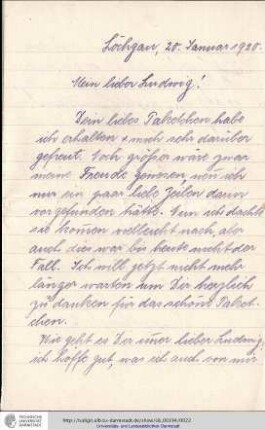 Löchgau, 20. Januar 1920.
Mein lieber Ludwig!
Dein liebes Paketchen habe
ich erhalten & mich sehr darüber
gefreut. Noch größer wäre zwar
meine Freude gewesen wenn ich
nur ein paar liebe Zeilen darin
vorgefunden hätte. Nun ich dachte
sie kommen vielleicht nach, aber
auch dies war bis heute nicht der
Fall. Ich will jetzt nicht mehr
länger warten um Dir herzlich
zu danken für das schöne Paket-
chen.
Wie geht es Dir immer lieber Ludwig,
ich hoffe gut, was ich auch von mir
TECHNISCHE
UNIVERSITÄT
DARMSTADT
Universitäts- und Landesbibliothek Darmstadt